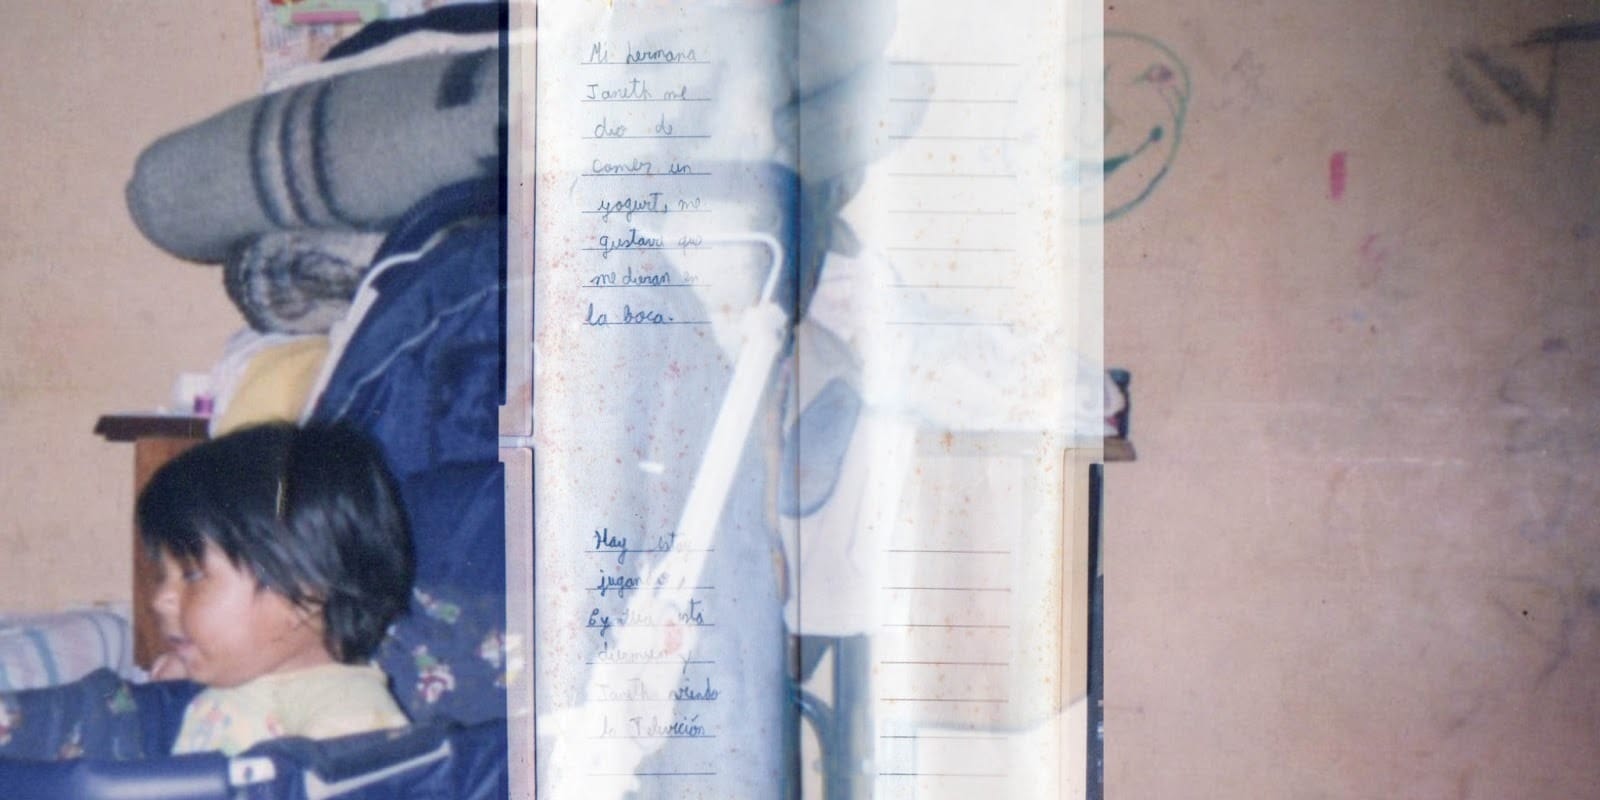 Mi hermana
Janeth me
dio de
comer un
yogurt, me
gustava que
me dieran en
la boca.
Hay estoy
jugando,
esta
y
Janeth viendo
la Televición